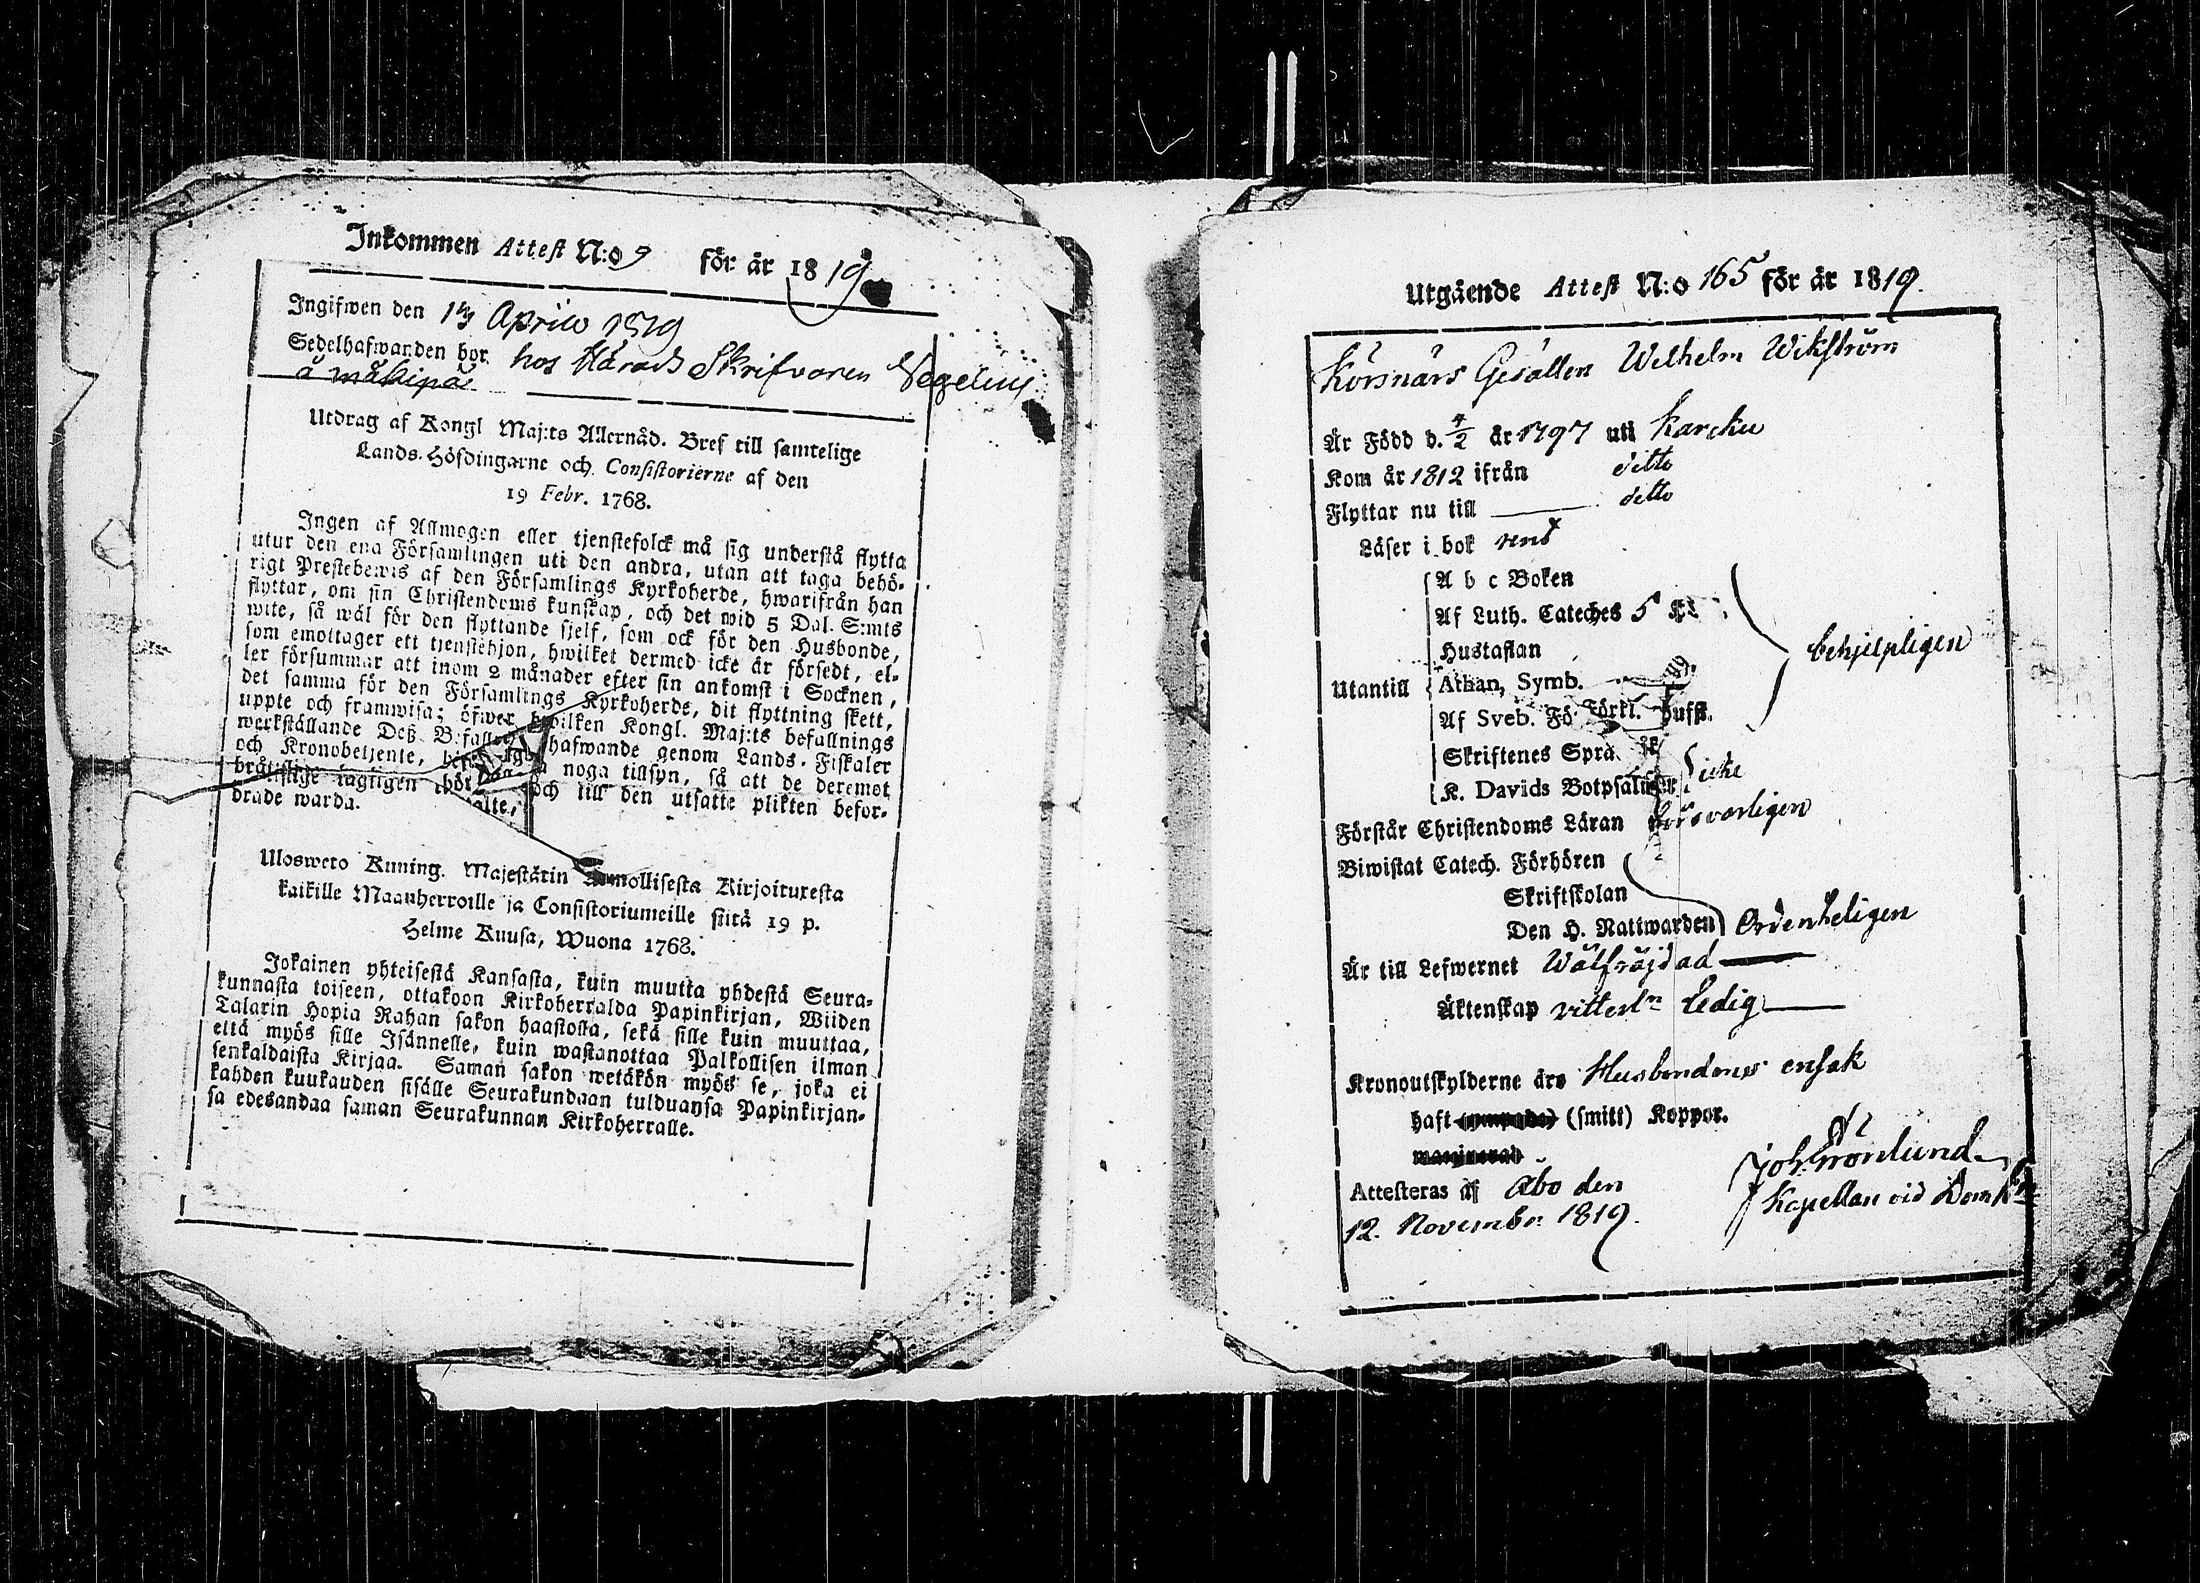 Inkommen Attest N:o 9 för år 1819
Ingifwen den Aprill 1819
Sedelhafwanden bor hos Härads Skrifvaren Segelius
å mäkipä
Utdrag af Kongl Maj:ts Allernåd. Bref till samtelige
Lands-Höfdingarne och Consistorierne af den
19 Febr. 1768.
Ingen af Allmogen eller tjenstefolck må sig understå flytta
utur den ena Församlingen uti den andra, utan att taga behö-
rigt Prestebewis af den Församlings Kyrkoherde, hwarifrån han
flyttar, om sin Christendoms kunskap, och det wid 5 Dal. S:mts
wite, så wäl för den flyttande sjelf, som ock för den Husbonde,
som emottager ett tjenstehjon, hwilket dermed icke är försedt, el-
ler försummar att inom 2 månader efter sin ankomst i Socknen,
det samma för den Församlings Kyrkoherde, dit flyttning skett,
uppte och framwisa; öfwer hwilken Kongl. Maj:ts befallnings
werkställande Deß Befallningshafwande genom Lands-Fiskaler
och Kronobetjente, noga tillsyn, så att de deremot
bråttslige lagligen och till den utsatte plikten befor-
drade warda.
Ulosweto Kuning. Majestätin Armollisesta Kirjoituxesta
kaikille Maanherroille ja Consistoriumeille siitä 19 p.
Helme Kuusa, Wuona 1768.
Jokainen yhteisestä Kansasta, kuin muutta yhdestä Seura-
kunnasta toiseen, ottakoon Kirkoherralda Papinkirjan, Wiiden
Talarin Hopia Rahan sakon haastolla, sekä sille kuin muuttaa,
että myös sille Isännelle, kuin wastanottaa Palkollisen ilman
senkaldaista Kirjaa. Saman sakon wetäkön myös se, joka ei
kahden kuukauden sisälle Seurakundaan tulduansa Papinkirjan-
sa edesandaa saman Seurakunnan Kirkoherralle.
Utgående Attest N:o 165 för år 1819.
Körsnärs Gesällen Wilhelm Wikström
Är Född d. 4/2 år 1797 uti Karcku
Kom år 1812 ifrån ditto
Flyttar nu till ditto
Läser i bok rent
A b c Boken
Af Luth. Cateches 5
Hustaflan
Utantill Athan, Symb. behjelpligen
Af Sveb. Förkl.
Skriftenes Språk
K. Davids Botpsalmer icke
Förstår Christendoms Läran försvarligen
Biwistat Catech. Förhören
Skriftskolan
Den H. Nattwarden Ordenteligen
Är till Lefwernet Wälfräjdad
Äktenskap vitterl:n Ledig
Kronoutskylderne äro Husbondens ensak
haft (smitt) Koppor.
Attesteras af Åbo den
12. Novembr. 1819.
Joh. Grönlund
Kapellan vid Domk:n